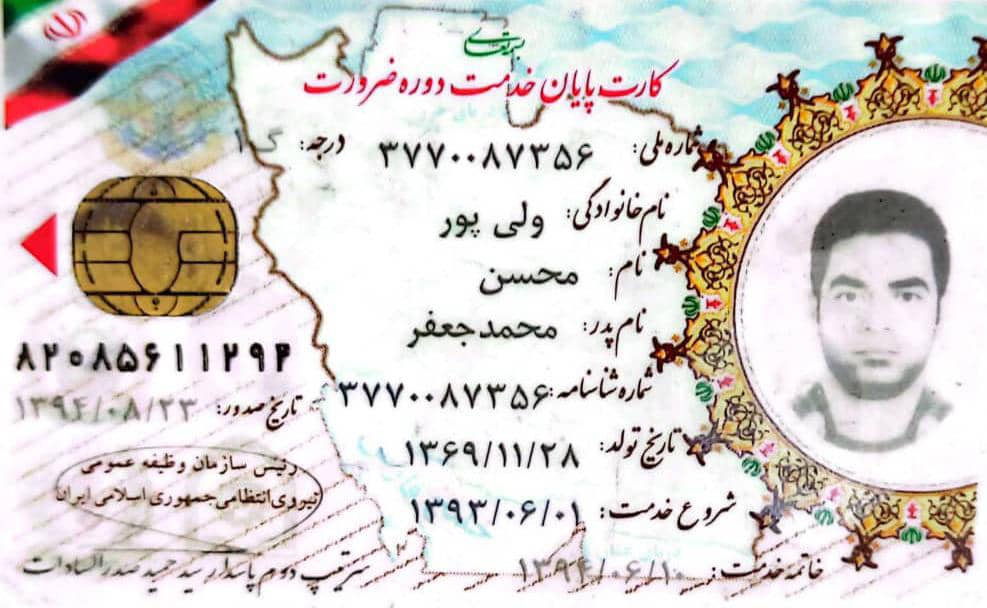 بسمه تعالی
کارت پایان خدمت دوره ضرورت
شماره ملی: ۳۷۷۰۰۸۷۳۵۶ درجه:
نام خانوادگی: ولی پور
نام: محسن
نام پدر: محمدجعفر
شماره شناسنامه: ۳۷۷۰۰۸۷۳۵۶
تاریخ تولد: ۱۳۶۹/۱۱/۲۸
شروع خدمت: ۱۳۹۳/۰۶/۰۱
خاتمه خدمت: ۱۳۹۴/۰۶/۱۰
۸۲۰۸۵۶۱۱۲۹۴
تاریخ صدور: ۱۳۹۴/۰۸/۲۳
رئیس سازمان وظیفه عمومی
نیروی انتظامی جمهوری اسلامی ایران
سرتیپ دوم پاسدار سید حمید صدرالسادات